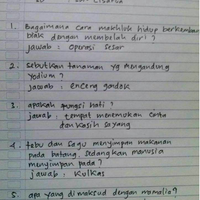 1. Bagaimana cara makhluk hidup berkemban
biak dengan membelah diri?
jawab : operasi sesar
2. Sebutkan tanaman yg mengandung
Yodium?
jawab : enceng gondok
3. apakah fungsi hati?
jawab : tempat menemukan cinta
dan kasih sayang
4. tebu dan sagu menyimpan makanan
pada batang, sedangkan manusia
menyimpan pada?
jawab : Kulkas
5. apa yang dimaksud dengan mamalia?